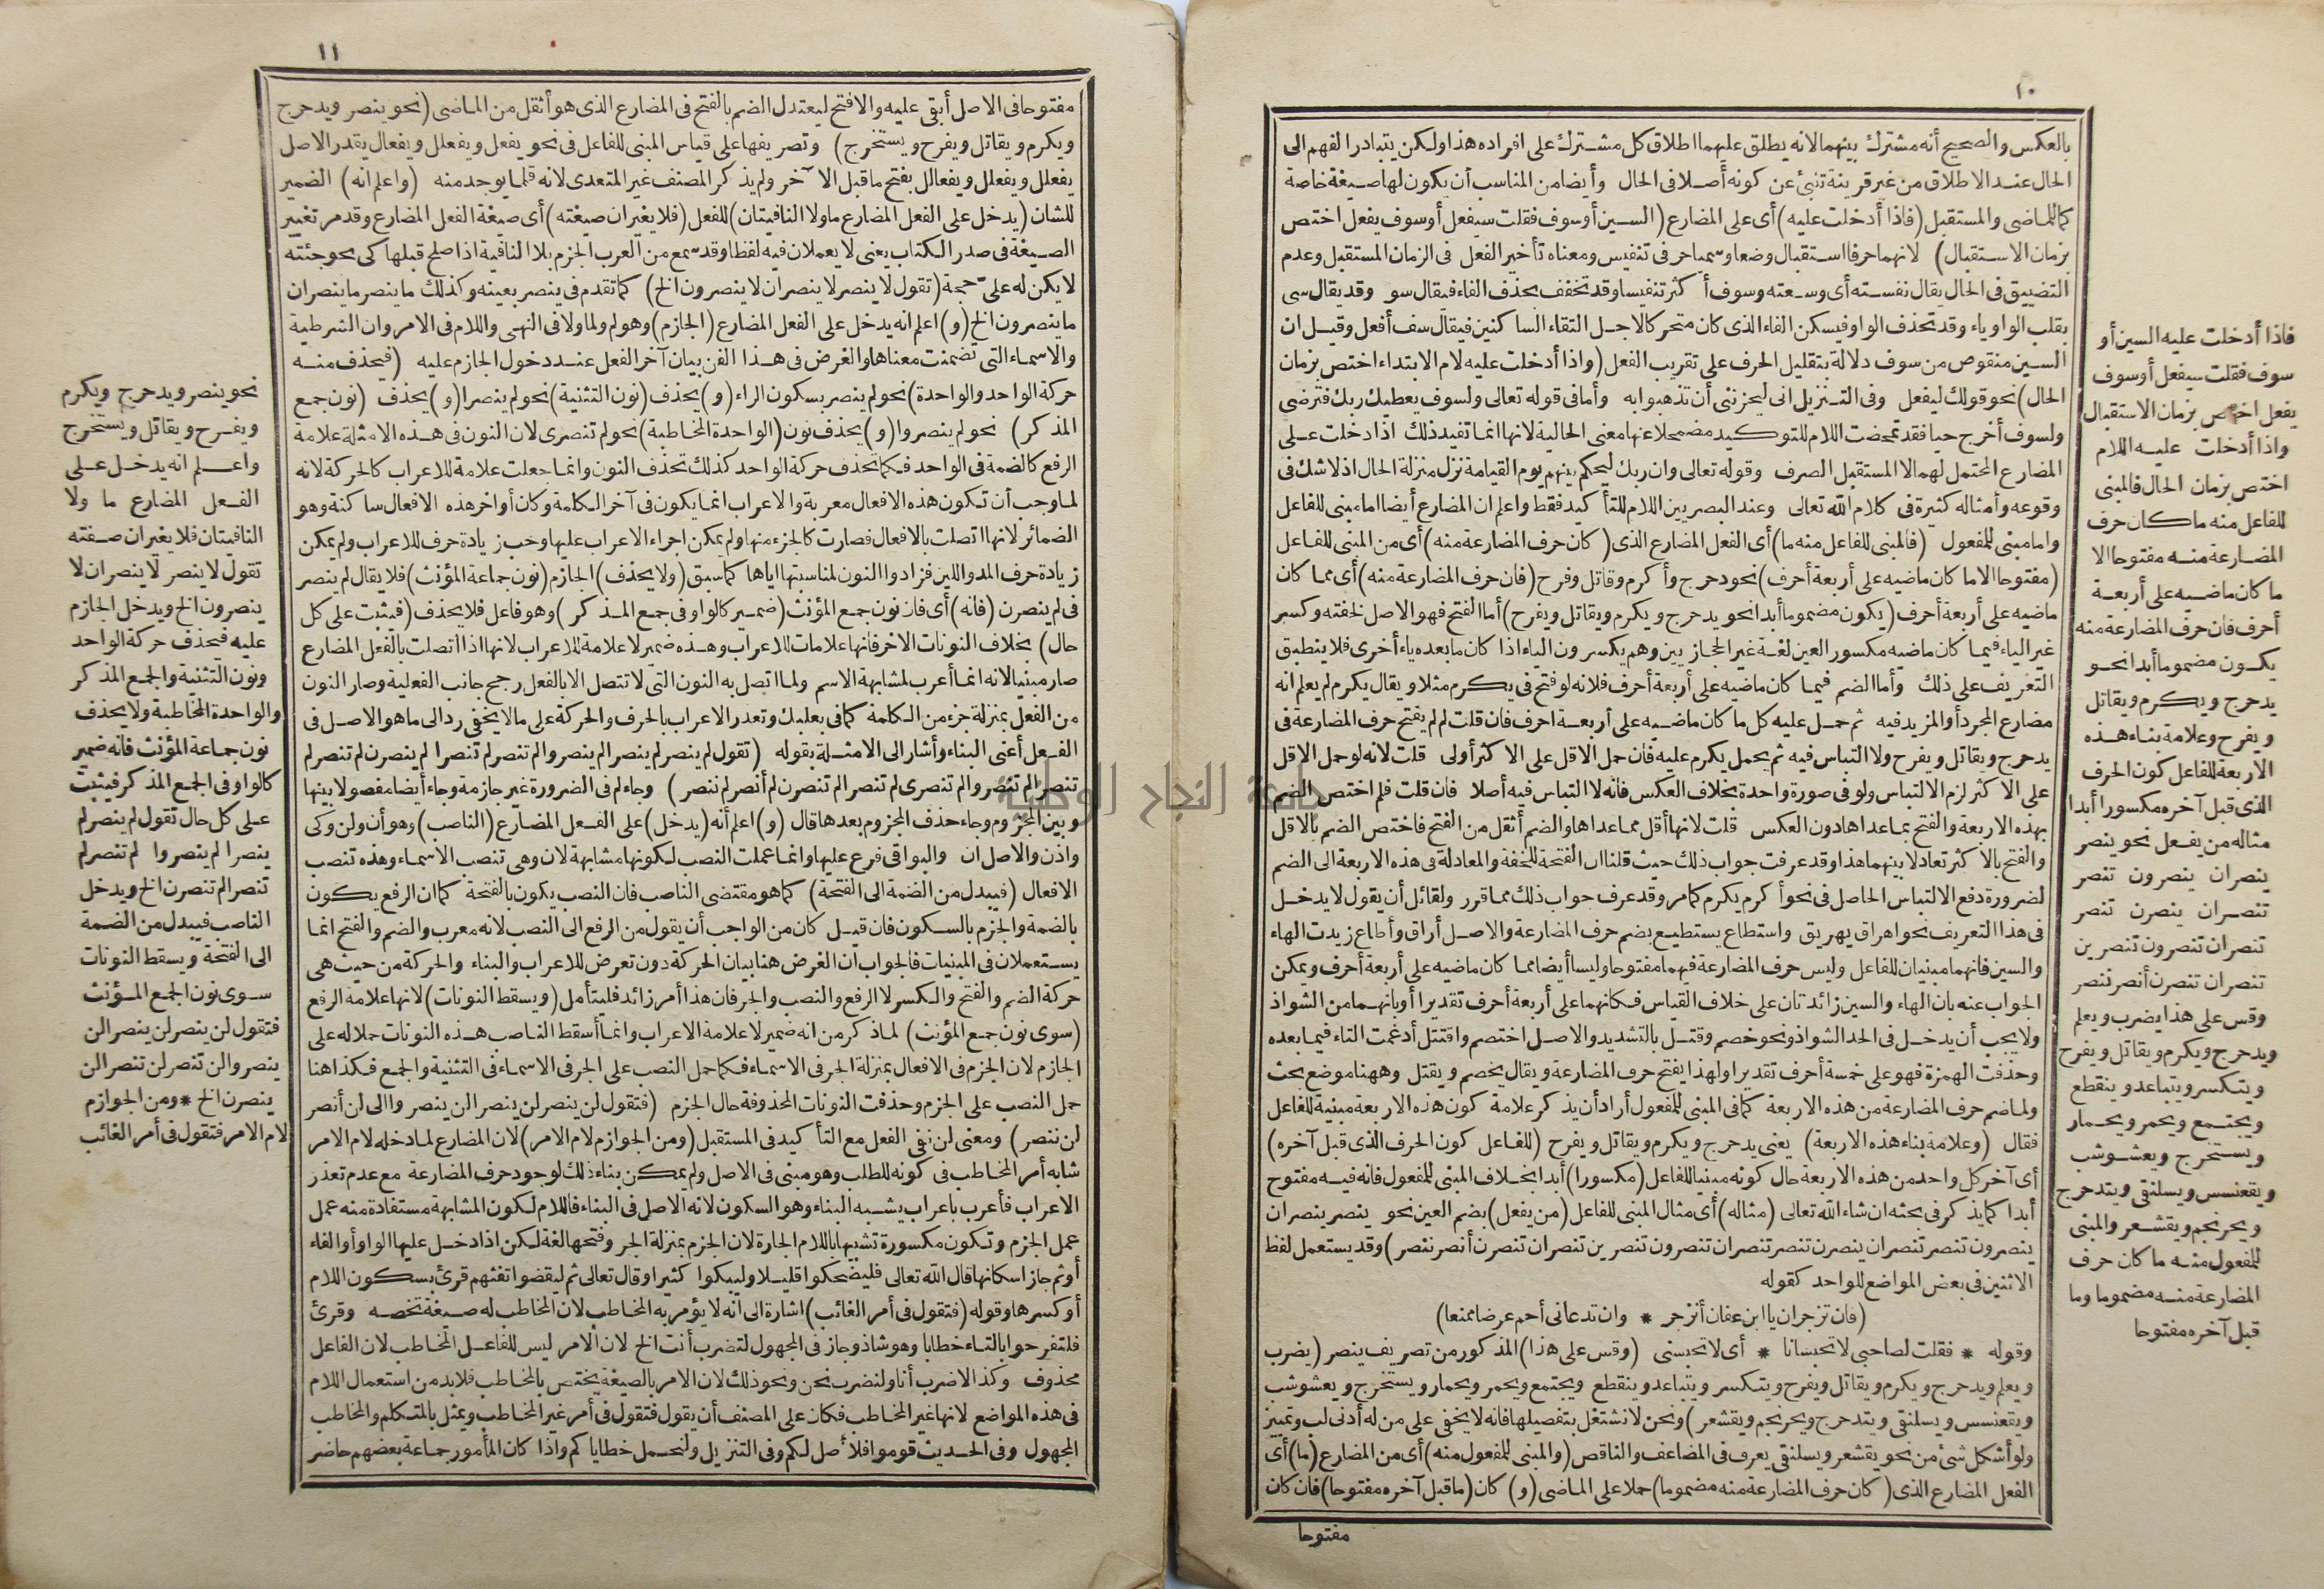 ١٠
بالعكس والصحيح أنه مشترك بينهما لانه يطلق عليهما اطلاق كل مشترك على افراده هذا ولكن يتبادر الفهم الى
الحال عند الاطلاق من غير قرينة تنبئ عن كونه أصلا فى الحال وأيضا من المناسب أن يكون لها صيغة خاصة
كما للماضى والمستقبل (فاذا أدخلت عليه) أى على المضارع (السين أو سوف فقلت سيفعل أو سوف يفعل اختص
بزمان الاستقبال) لانهما حرفا استقبال وضعا وسميا حرفى تنفيس ومعناه تأخير الفعل فى الزمان المستقبل وعدم
التضييق فى الحال يقال نفسته أى وسعته وسوف أكثر تنفيسا وقد تخفف بحذف الفاء فيقال سو وقد يقال سى
بقلب الواو ياء وقد تحذف الواو فيسكن الفاء الذى كان متحركا لاجل التقاء الساكنين فيقال سف أفعل وقيل ان
السين منقوص من سوف دلالة بتقليل الحرف على تقريب الفعل (واذا أدخلت عليه لام الابتداء اختص بزمان
الحال) نحو قولك ليفعل وفى التنزيل انى ليحزننى أن تذهبوا به وأما فى قوله تعالى ولسوف يعطيك ربك فترضى
ولسوف أخرج حيا فقد تمحضت اللام للتوكيد مضمحلا عنها معنى الحالية لانها انما تفيد ذلك اذا دخلت على
المضارع المحتمل لهما لا المستقبل الصرف وقوله تعالى وان ربك ليحكم بينهم يوم القيامة نزل منزلة الحال اذ لا شك فى
وقوعه وأمثاله كثيرة فى كلام الله تعالى وعند البصريين اللام للتأكيد فقط واعلم ان المضارع أيضا اما مبنى للفاعل
واما مبنى للمفعول (فالمبنى للفاعل منه ما) أى الفعل المضارع الذى (كان حرف المضارعة منه) أى من المبنى للفاعل
(مفتوحا الا ما كان ماضيه على أربعة أحرف) نحو دحرج وأكرم وقاتل وفرح (فان حرف المضارعة منه) أى مما كان
ماضيه على أربعة أحرف (يكون مضموما أبدا نحو يدحرج ويكرم ويقاتل ويفرح) أما الفتح فهو الاصل لخفته وكسر
غير الياء فيما كان ماضيه مكسور العين لغة غير الحجازيين وهم يكسرون الياء اذا كان ما بعده ياء أخرى فلا ينطبق
التعريف على ذلك وأما الضم فيما كان ماضيه على أربعة أحرف فلانه لو فتح فى يكرم مثلا ويقال يكرم لم يعلم انه
مضارع المجرد أو المزيد فيه ثم حمل عليه كل ما كان ماضيه على أربعة احرف فان قلت لم لم يفتح حرف المضارعة فى
يدحرج ويقاتل ويفرح ولا التباس فيه ثم يحمل يكرم عليه فان حمل الاقل على الاكثر أولى قلت لانه لو حمل الاقل
على الاكثر لزم الالتباس ولو فى صورة واحدة بخلاف العكس فانه لا التباس فيه أصلا فان قلت فلم اختص الضم
بهذه الاربعة والفتح بما عداها دون العكس قلت لانها أقل مما عداها والضم أثقل من الفتح فاختص الضم بالاقل
والفتح بالاكثر تعادلا بينهما هذا وقد عرفت جواب ذلك حيث قلنا ان الفتحة للخفة والمعادلة فى هذه الاربعة الى الضم
لضرورة دفع الالتباس الحاصل فى نحو أكرم يكرم كما مر وقد عرف جواب ذلك مما قرر ولقائل أن يقول لا يدخل
فى هذا التعريف نحو اهراق يهريق واستطاع يستطيع بضم حرف المضارعة والاصل أراق وأطاع زيدت الهاء
والسين فانهما مبنيان للفاعل وليس حرف المضارعة فيهما مفتوحا وليسا أيضا مما كان ماضيه على أربعة أحرف ويمكن
الجواب عنه بان الهاء والسين زائدتان على خلاف القياس فكانهما على أربعة أحرف تقديرا أو بانهما من الشواذ
ولا يجب أن يدخل فى الحد الشواذ ونحو خصم وقتل بالتشديد والاصل اختصم واقتتل أدغمت التاء فيما بعده
وحذفت الهمزة فهو على خمسة أحرف تقديرا ولهذا يفتح حرف المضارعة ويقال يخصم ويقتل وههنا موضع بحث
ولما ضم حرف المضارعة من هذه الاربعة كما فى المبنى للمفعول أراد أن يذكر علامة كون هذه الاربعة مبنية للفاعل
فقال (وعلامة بناء هذه الاربعة) يعنى يدحرج ويكرم ويقاتل ويفرح (للفاعل كون الحرف الذى قبل آخره)
أى آخر كل واحد من هذه الاربعة حال كونه مبنيا للفاعل (مكسورا) أبدا بخلاف المبنى للمفعول فانه فيه مفتوح
أبدا كما يذكر فى بحثه ان شاء الله تعالى (مثاله) أى مثال المبنى للفاعل (من يفعل) بضم العين نحو ينصر ينصران
ينصرون تنصر تنصران ينصرن تنصر تنصران تنصرون تنصرين تنصران تنصرن أنصر ننصر) وقد يستعمل لفظ
الاثنين فى بعض المواضع للواحد كقوله
(فان تزجران يا ابن عفان أنزجر * وان تدعانى أحم عرضا ممنعا)
وقوله * فقلت لصاحبى لا تحبسانا * أى لا تحبسنى (وقس على هذا) المذكور من تصريف ينصر (يضرب
ويعلم ويدحرج ويكرم ويقاتل ويفرح ويتكسر ويتباعد وينقطع ويجتمع ويحمر ويحمار ويستخرج ويعشوشب
ويقعنسس ويسلنقى ويتدحرج ويحرنجم ويقشعر) ونحن لا نشتغل بتفصيلها فانه لا يخفى على من له أدنى لب وتمييز
ولو أشكل شئ من نحو يقشعر ويسلنقى يعرف فى المضاعف والناقص (والمبنى للمفعول منه) أى من المضارع (ما) أى
الفعل المضارع الذى (كان حرف المضارعة منه مضموما) حملا على الماضى (و) كان (ما قبل آخره مفتوحا) فان كان
مفتوحا
فاذا أدخلت عليه السين أو
سوف فقلت سيفعل أو سوف
يفعل اختص بزمان الاستقبال
واذا أدخلت عليه اللام
اختص بزمان الحال فالمبنى
للفاعل منه ما كان حرف
المضارعة منه مفتوحا الا
ما كان ماضيه على أربعة
أحرف فان حرف المضارعة منه
يكون مضموما أبدا نحو
يدحرج ويكرم ويقاتل
ويفرح وعلامة بناء هذه
الاربعة للفاعل كون الحرف
الذى قبل آخره مكسورا أبدا
مثاله من يفعل نحو ينصر
ينصران ينصرون تنصر
تنصران ينصرن تنصر
تنصران تنصرون تنصرين
تنصران تنصرن أنصر ننصر
وقس على هذا يضرب ويعلم
ويدحرج ويكرم ويقاتل ويفرح
ويتكسر ويتباعد وينقطع
ويجتمع ويحمر ويحمار
ويستخرج ويعشوشب
ويقعنسس ويسلنقى ويتدحرج
ويحرنجم ويقشعر والمبنى
للمفعول منه ما كان حرف
المضارعة منه مضموما وما
قبل آخره مفتوحا
١١
مفتوحا فى الاصل أبقى عليه والا فتح ليعتدل الضم بالفتح فى المضارع الذى هو أثقل من الماضى (نحو ينصر ويدحرج
ويكرم ويقاتل ويفرح ويستخرج) وتصريفها على قياس المبنى للفاعل فى نحو يفعل ويفعلل ويفعال يقدر الاصل
يفعلل ويفعلل ويفعالل بفتح ما قبل الآخر ولم يذكر المصنف غير المتعدى لانه قلما يوجد منه (واعلم انه) الضمير
للشان (يدخل على الفعل المضارع ما ولا النافيتان) للفعل (فلا يغيران صيغته) أى صيغة الفعل المضارع وقد مر تغيير
الصيغة فى صدر الكتاب يعنى لا يعملان فيه لفظا وقد سمع من العرب الجزم بلا النافية اذا صلح قبلها كى نحو جئته
لا يكن له على حجة (تقول لا ينصر لا ينصران لا ينصرون الخ) كما تقدم فى ينصر بعينه وكذلك ما ينصر ما ينصران
ما ينصرون الخ (و) اعلم انه يدخل على الفعل المضارع (الجازم) وهو لم ولما ولا فى النهى واللام فى الامر وان الشرطية
والاسماء التى تضمنت معناها والغرض فى هذا الفن بيان آخر الفعل عند دخول الجازم عليه (فيحذف منه
حركة الواحد والواحدة) نحو لم ينصر بسكون الراء (و) يحذف (نون التثنية) نحو لم ينصرا (و) يحذف (نون جمع
المذكر) نحو لم ينصروا (و) يحذف نون (الواحدة المخاطبة) نحو لم تنصرى لان النون فى هذه الامثلة علامة
الرفع كالضمة فى الواحد فكما تحذف حركة الواحد كذلك تحذف النون وانما جعلت علامة للاعراب كالحركة لانه
لما وجب أن تكون هذه الافعال معربة والاعراب انما يكون فى آخر الكلمة وكان أواخر هذه الافعال ساكنة وهو
الضمائر لانها اتصلت بالافعال فصارت كالجزء منها ولم يمكن اجراء الاعراب عليها وجب زيادة حرف للاعراب ولم يمكن
زيادة حرف المد واللين فزادوا النون لمناسبتها اياها كما سبق (ولا يحذف) الجازم (نون جماعة المؤنث) فلا يقال لم ينصر
فى لم ينصرن (فانه) أى فان نون جمع المؤنث (ضمير كالواو فى جمع المذكر) وهو فاعل فلا يحذف (فيثبت على كل
حال) بخلاف النونات الاخر فانها علامات للاعراب وهذه ضمير لا علامة للاعراب لانها اذا اتصلت بالفعل المضارع
صار مبنيا لانه انما أعرب لمشابهة الاسم ولما اتصل به النون التى لا تتصل الا بالفعل رجح جانب الفعلية وصار النون
من الفعل بمنزلة جزء من الكلمة كما فى بعلبك وتعذر الاعراب بالحرف والحركة على ما لا يخفى رد الى ما هو الاصل فى
الفعل أعنى البناء وأشار الى الامثلة بقوله (تقول لم ينصر لم ينصرا لم ينصروا لم تنصر لم تنصرا لم ينصرن لم تنصر لم
تنصرا لم تنصروا لم تنصرى لم تنصرا لم تنصرن لم أنصر لم ننصر) وجاء لم فى الضرورة غير جازمة وجاء أيضا مفصولا بينها
وبين المجزوم وجاء حذف المجزوم بعدها قال (و) اعلم أنه (يدخل) على الفعل المضارع (الناصب) وهو أن ولن وكى
واذن والاصل ان والبواقى فرع عليها وانما عملت النصب لكونها مشابهة لان وهى تنصب الاسماء وهذه تنصب
الافعال (فيبدل من الضمة الى الفتحة) كما هو مقتضى الناصب فان النصب يكون بالفتحة كما ان الرفع يكون
بالضمة والجزم بالسكون فان قيل كان من الواجب أن يقول من الرفع الى النصب لانه معرب والضم والفتح انما
يستعملان فى المبنيات فالجواب ان الغرض هنا بيان الحركة دون تعرض للاعراب والبناء والحركة من حيث هى
حركة الضم والفتح والكسر لا الرفع والنصب والجر فان هذا أمر زائد فليتأمل (ويسقط النونات) لانها علامة الرفع
(سوى نون جمع المؤنث) لما ذكر من انه ضمير لا علامة الاعراب وانما أسقط الناصب هذه النونات حملا له على
الجازم لان الجزم فى الافعال بمنزلة الجر فى الاسماء فكما حمل النصب على الجر فى الاسماء فى التثنية والجمع فكذا هنا
حمل النصب على الجزم وحذفت النونات المحذوفة حال الجزم (فتقول لن ينصر لن ينصرا لن ينصروا الى لن أنصر
لن ننصر) ومعنى لن نفى الفعل مع التأكيد فى المستقبل (ومن الجوازم لام الامر) لان المضارع لما دخله لام الامر
شابه أمر المخاطب فى كونه للطلب وهو مبنى فى الاصل ولم يمكن بناء ذلك لوجود حرف المضارعة مع عدم تعذر
الاعراب فأعرب باعراب يشبه البناء وهو السكون لانه الاصل فى البناء فاللام لكون المشابهة مستفادة منه عمل
عمل الجزم وتكون مكسورة تشبيها باللام الجارة لان الجزم بمنزلة الجر وفتحها لغة لكن اذا دخل عليها الواو أو الفاء
أو ثم جاز اسكانها قال الله تعالى فليضحكوا قليلا وليبكوا كثيرا وقال تعالى ثم ليقضوا تفثهم قرئ بسكون اللام
أو كسرها وقوله (فتقول فى أمر الغائب) اشارة الى انه لا يؤمر به المخاطب لان المخاطب له صيغة تخصه وقرئ
فلتفرحوا بالتاء خطابا وهو شاذ وجاز فى المجهول لتضرب أنت الخ لان الامر ليس للفاعل المخاطب لان الفاعل
محذوف وكذا لاضرب أنا ولنضرب نحن ونحو ذلك لان الامر بالصيغة يختص بالمخاطب فلا بد من استعمال اللام
فى هذه المواضع لانها غير المخاطب فكان على المصنف أن يقول فتقول فى أمر غير المخاطب ويمثل بالمتكلم والمخاطب
المجهول وفى الحديث قوموا فلأصل لكم وفى التنزيل ولنحمل خطاياكم واذا كان المأمور جماعة بعضهم حاضر
نحو ينصر ويدحرج ويكرم
ويفرح ويقاتل ويستخرج
واعلم انه يدخل على
الفعل المضارع ما ولا
النافيتان فلا يغيران صيغته
تقول لا ينصر لا ينصران لا
ينصرون الخ ويدخل الجازم
عليه فيحذف حركة الواحد
ونون التثنية والجمع المذكر
والواحدة المخاطبة ولا يحذف
نون جماعة المؤنث فانه ضمير
كالواو فى الجمع المذكر فيثبت
على كل حال تقول لم ينصر لم
ينصرا لم ينصروا لم تنصر لم
تنصرا لم تنصرن الخ ويدخل
الناصب فيبدل من الضمة
الى الفتحة ويسقط النونات
سوى نون الجمع المؤنث
فتقول لن ينصر لن ينصرا لن
ينصروا لن تنصر لن تنصرا لن
ينصرن الخ * ومن الجوازم
لام الامر فتقول فى أمر الغائب
جامعة النجاح الوطنية